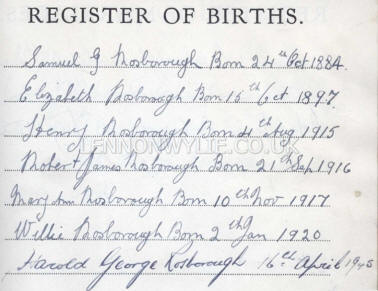 REGISTER OF BIRTHS.
Samuel G Rosborough Born 24th Oct 1884.
Elizabeth Rosborough Born 16th Oct 1897.
Henry Rosborough Born 4th Aug 1915
LENNONWYLIE.CO.UK
Robert James Rosborough Born 21th Sep 1916
Mary Ann Rosborough Born 10th Nov 1917
Willie Rosborough Born 2th Jan 1920
Harold George Rosborough 16th April 1945